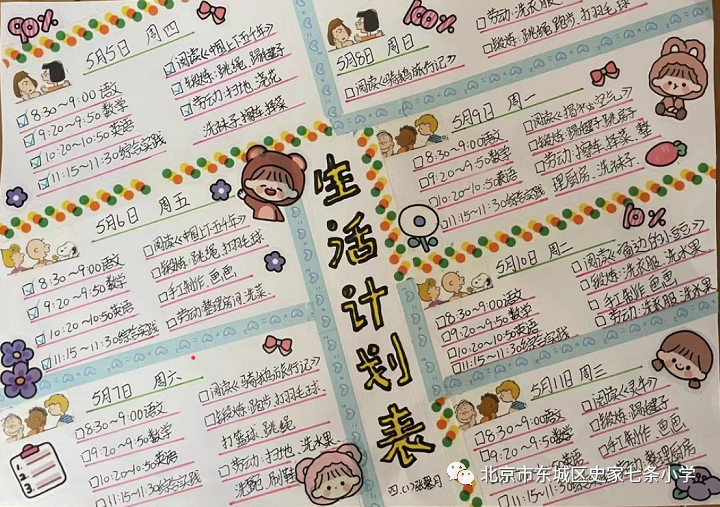 90%
5月5日 周四
☑8:30~9:00语文
☑9:20~9:50数学
☑10:20~10:50英语
☑11:15~11:30综合实践
☑阅读《中国上下五千年》
☑锻炼:跳绳、踢毽子
☑劳动:扫地、浇花
洗袜子、擦车、择菜
5月6日 周五
☑8:30~9:00语文
☑9:20~9:50数学
☑10:20~10:50英语
☑11:15~11:30综合实践
☐阅读《中国上下五千年》
☐锻炼:跳绳、打羽毛球
☐手工制作、芭芭
☐劳动:整理房间、洗菜
5月7日 周六
☐8:30~9:00语文
☐9:20~9:50数学
☐10:20~10:50英语
☐11:15~11:30综合实践
☐阅读《骑鹅旅行记》
☐锻炼:跑步、打羽毛球
打篮球、跳绳
☐劳动:扫地、洗水果
刷鞋
生活计划表
100%
5月8日 周日
☐阅读《骑鹅旅行记》
☐劳动:洗衣服
☐锻炼:跳绳、跑步、打羽毛球
5月9日 周一
☐8:30~9:00语文
☐9:20~9:50数学
☐10:20~10:50英语
☐11:15~11:30综合实践
☐锻炼:踢毽子、跳房子
☐劳动:擦车、择菜、整
理厨房、洗袜子
10%
5月10日 周二
☐8:30~9:00语文
☐9:20~9:50数学
☐10:20~10:50英语
☐11:15~11:30综合实践
☐锻炼:洗衣服、洗水果
☐手工制作、芭芭
☐劳动:洗衣服、洗水果
5月11日 周三
☐8:30~9:00语文
☐9:20~9:50数学
英语
☐11:15~11:30综合实践
☐锻炼:踢毽子
☐手工制作、芭芭
整理厨房
北京市东城区史家七条小学